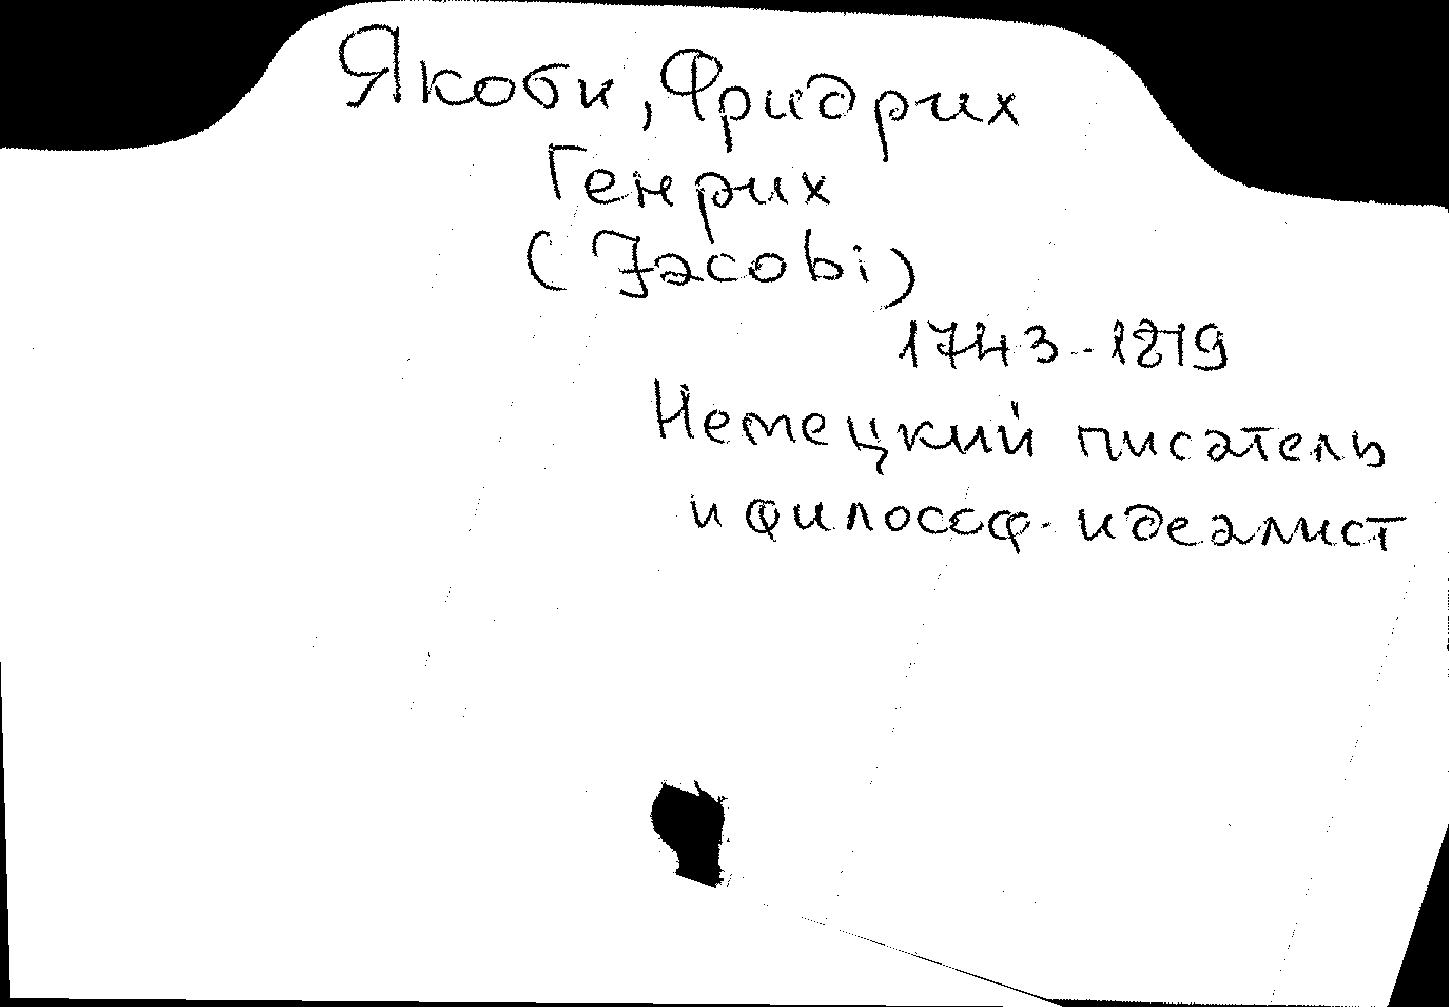 Якоби, Фридрих
Генрих
(Jacobi)
1743-1819
Немецкий писатель
и философ-идеалист